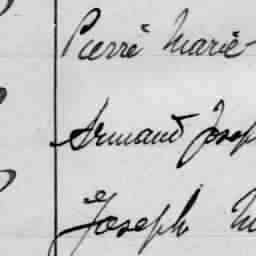 Pierre Marie
Armand Josep
Joseph M